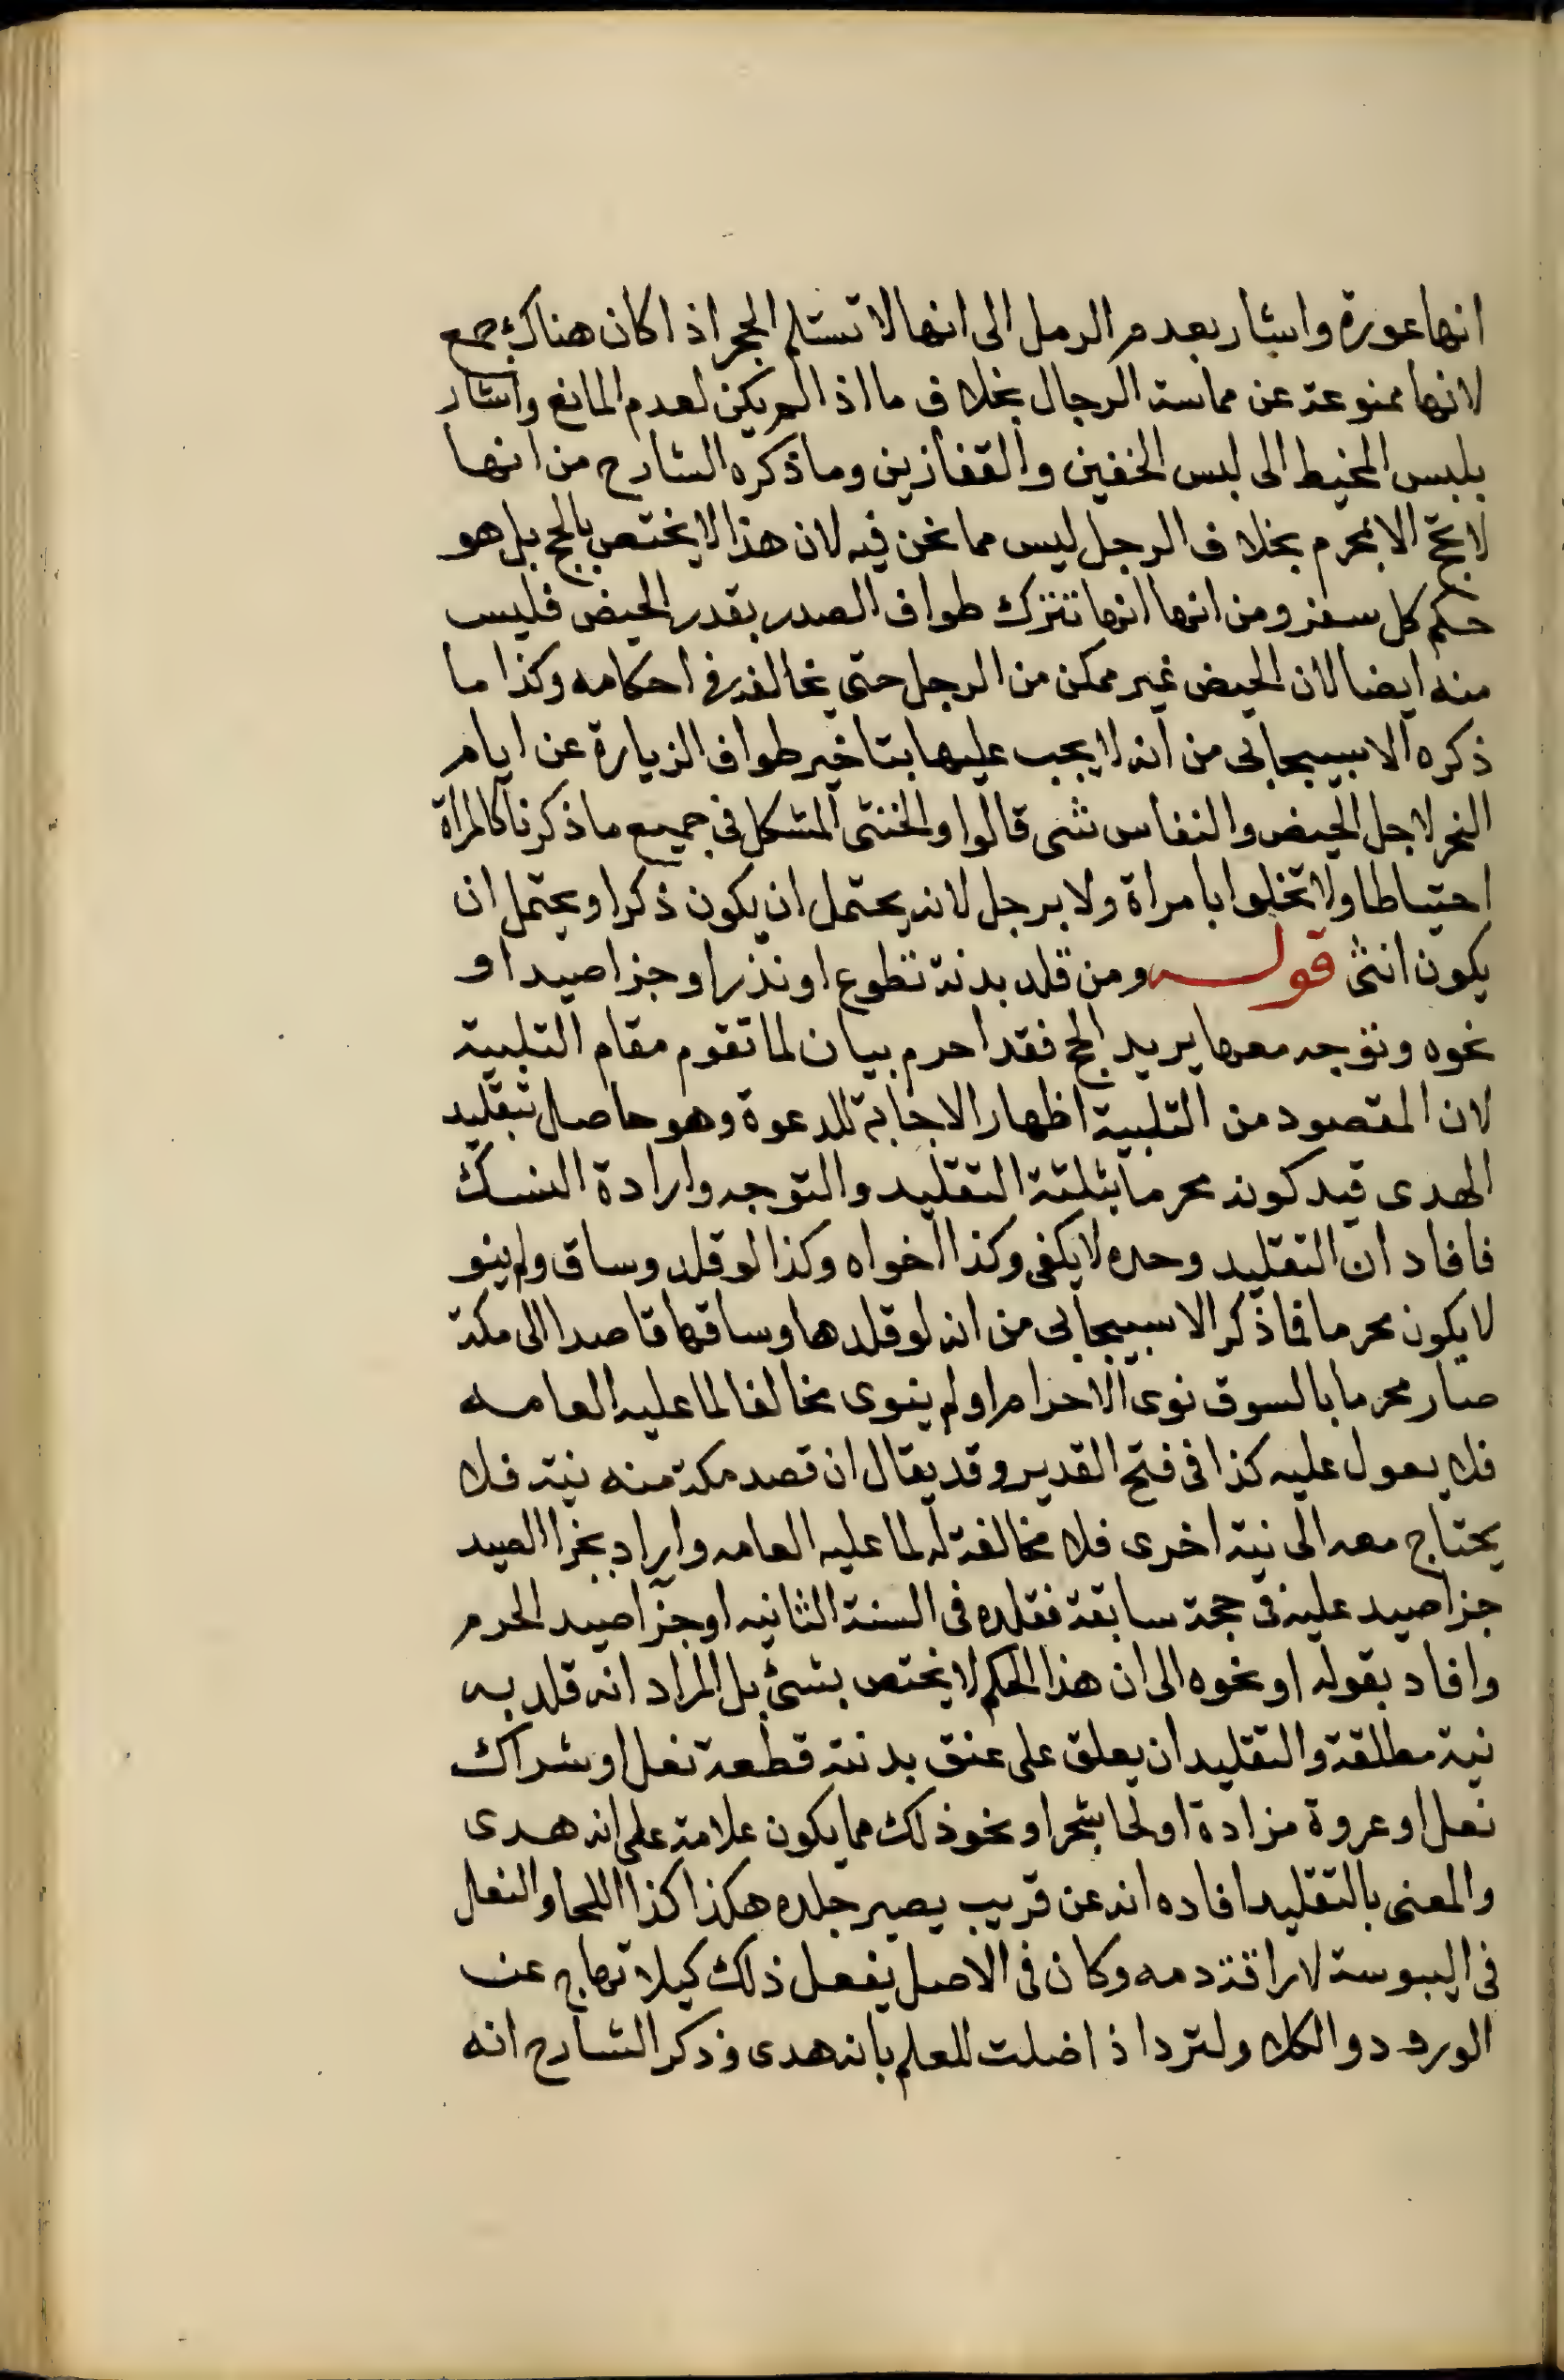 انها عورة واشار بعدم الرمل الى انها لا تستلم الحجر اذا كان هناك جمع
لانها ممنوعة عن مماسة الرجال بخلاف ما اذا لم يكن لعدم المانع واشار
بلبس المخيط الى لبس الخفين والقفازين وما ذكره الشارح من انها
لا تحج الا بمحرم بخلاف الرجل ليس مما نحن فيه لان هذا لا يختص بالحج بل هو
حكم كل سفر ومن انها انها تترك طواف الصدر بقدر الحيض فليس
منه ايضا لان الحيض غير ممكن من الرجل حتى تخالفه في احكامه وكذا ما
ذكره الاسبيجابى من انه لا يجب عليها بتاخير طواف الزيارة عن ايام
النحر لاجل الحيض والنفاس شى قالوا والخنثى المشكل في جميع ما ذكرنا كالمراة
احتياطا ولا تخلوا بامراة ولا برجل لانه يحتمل ان يكون ذكرا ويحتمل ان
يكون انثى قوله ومن قلد بدنة تطوع او نذر او جزا صيد او
نحوه وتوجه معها يريد الحج فقد احرم بيان لما تقوم مقام التلبية
لان المقصود من التلبية اظهار الاجابة للدعوة وهو حاصل بتقليد
الهدى قيد كونه محرما بثلثة التقليد والتوجه وارادة النسك
فافاد ان التقليد وحده لا يكفى وكذا اخواه وكذا لو قلد وساق ولم ينو
لا يكون محرما فما ذكر الاسبيجابى من انه لو قلدها وساقها قاصدا الى مكة
صار محرما بالسوق نوى الاحرام او لم ينوى مخالفا لما عليه العامه
فلا يعول عليه كذا فى فتح القدير وقد يقال ان قصد مكة منه نية فلا
يحتاج معه الى نية اخرى فلا مخالفة له لما عليه العامه واراد بجزا الصيد
جزا صيد عليه فى حجة سابقة فقلده فى السنة الثانيه او جزا صيد الحرم
وافاد بقوله او نحوه الى ان هذا الحكم لا يختص بشئ بل المراد انه قلد به
نية مطلقة والتقليد ان يعلق على عنق بدنته قطعة نعل او شراك
نعل او عروة مزادة او لحا شجر او نحو ذلك مما يكون علامة على انه هدى
والمعنى بالتقليد افاده انه عن قريب يصير جلده هكذا كذا اللحا والنعل
فى اليبوسة لاراقة دمه وكان فى الاصل يفعل ذلك كيلا تهاج عن
الورود والكلا ولترد اذا ضلت للعلم بانه هدى وذكر الشارح انه